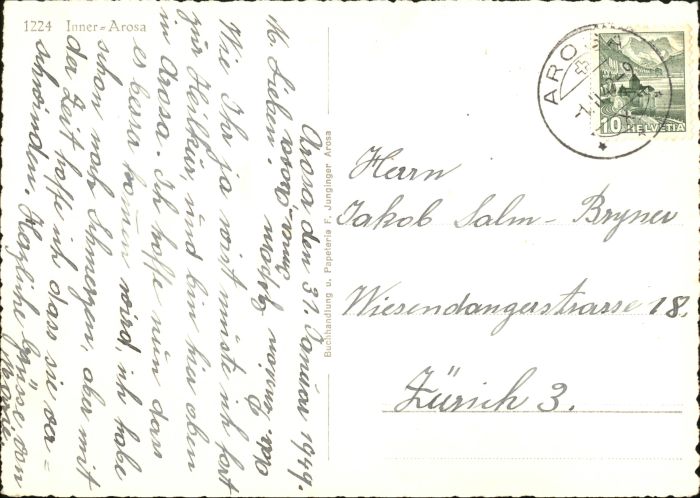 1224 Inner-Arosa
Arosa, den 31. Januar 1949.
M. Lieben.
Wie Ihr ja wisst müsste ich fort
zur Heilkur, und bin hier oben
in Arosa. Ich hoffe nun dass
es besser kommen wird, ich habe
schon noch Schmerzen, aber mit
der Zeit hoffe ich dass sie ver=
schwinden. Herzliche Grüsse von
Buchhandlung u. Papeterie F. Junginger Arosa
AROSA
10 HELVETIA
Herrn
Jakob Salm-Bryner
Wiesendangerstrasse 18.
Zürich 3.